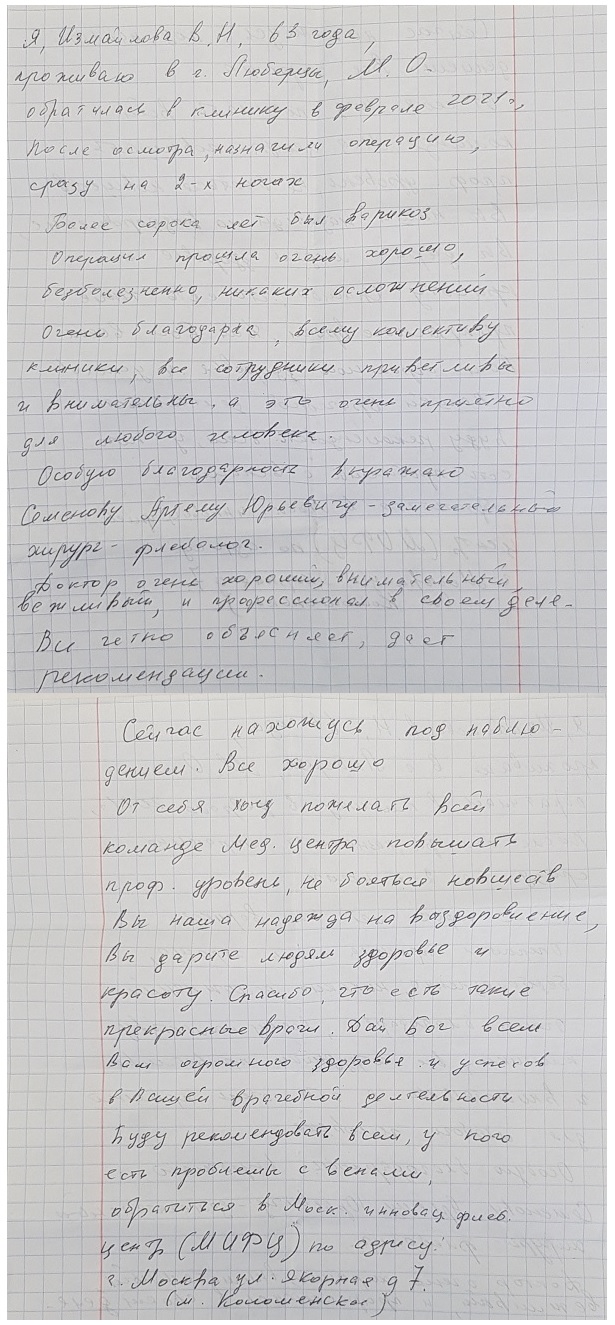 Я, Измайлова В. Н, 63 года,
проживаю в г. Люберцы, М. О.
обратилась в клинику в феврале 2021г,
После осмотра, назначили операцию,
сразу на 2-х ногах
Более сорока лет был варикоз
Операция прошла очень хорошо,
безболезненно, никаких осложнений
Очень благодарна, всему коллективу
клиники, все сотрудники приветливы
и внимательны. а это очень приятно
для любого человека.
Особую благодарность выражаю
Семенову Артему Юрьевичу - замечательный
хирург - флеболог.
Доктор очень хороший, внимательный
вежливый, и профессионал в своем деле.
Все четко объясняет, дает
рекомендации.
Сейчас нахожусь под наблю-
дением. Все хорошо
От себя хочу пожелать всей
команде Мед. центра повышать
проф. уровень, не бояться новшеств
Вы наша надежда на выздоровление,
Вы дарите людям здоровье и
красоту. Спасибо, что есть такие
прекрасные врачи. Дай Бог всем
Вам огромного здоровья и успехов
в Вашей врачебной деятельности
Буду рекомендовать всем, у кого
есть проблемы с венами,
обратиться в Моск. инновац. флеб.
центр (МИФЦ) по адресу:
г. Москва ул. Якорная д 7.
(м. Коломенское)